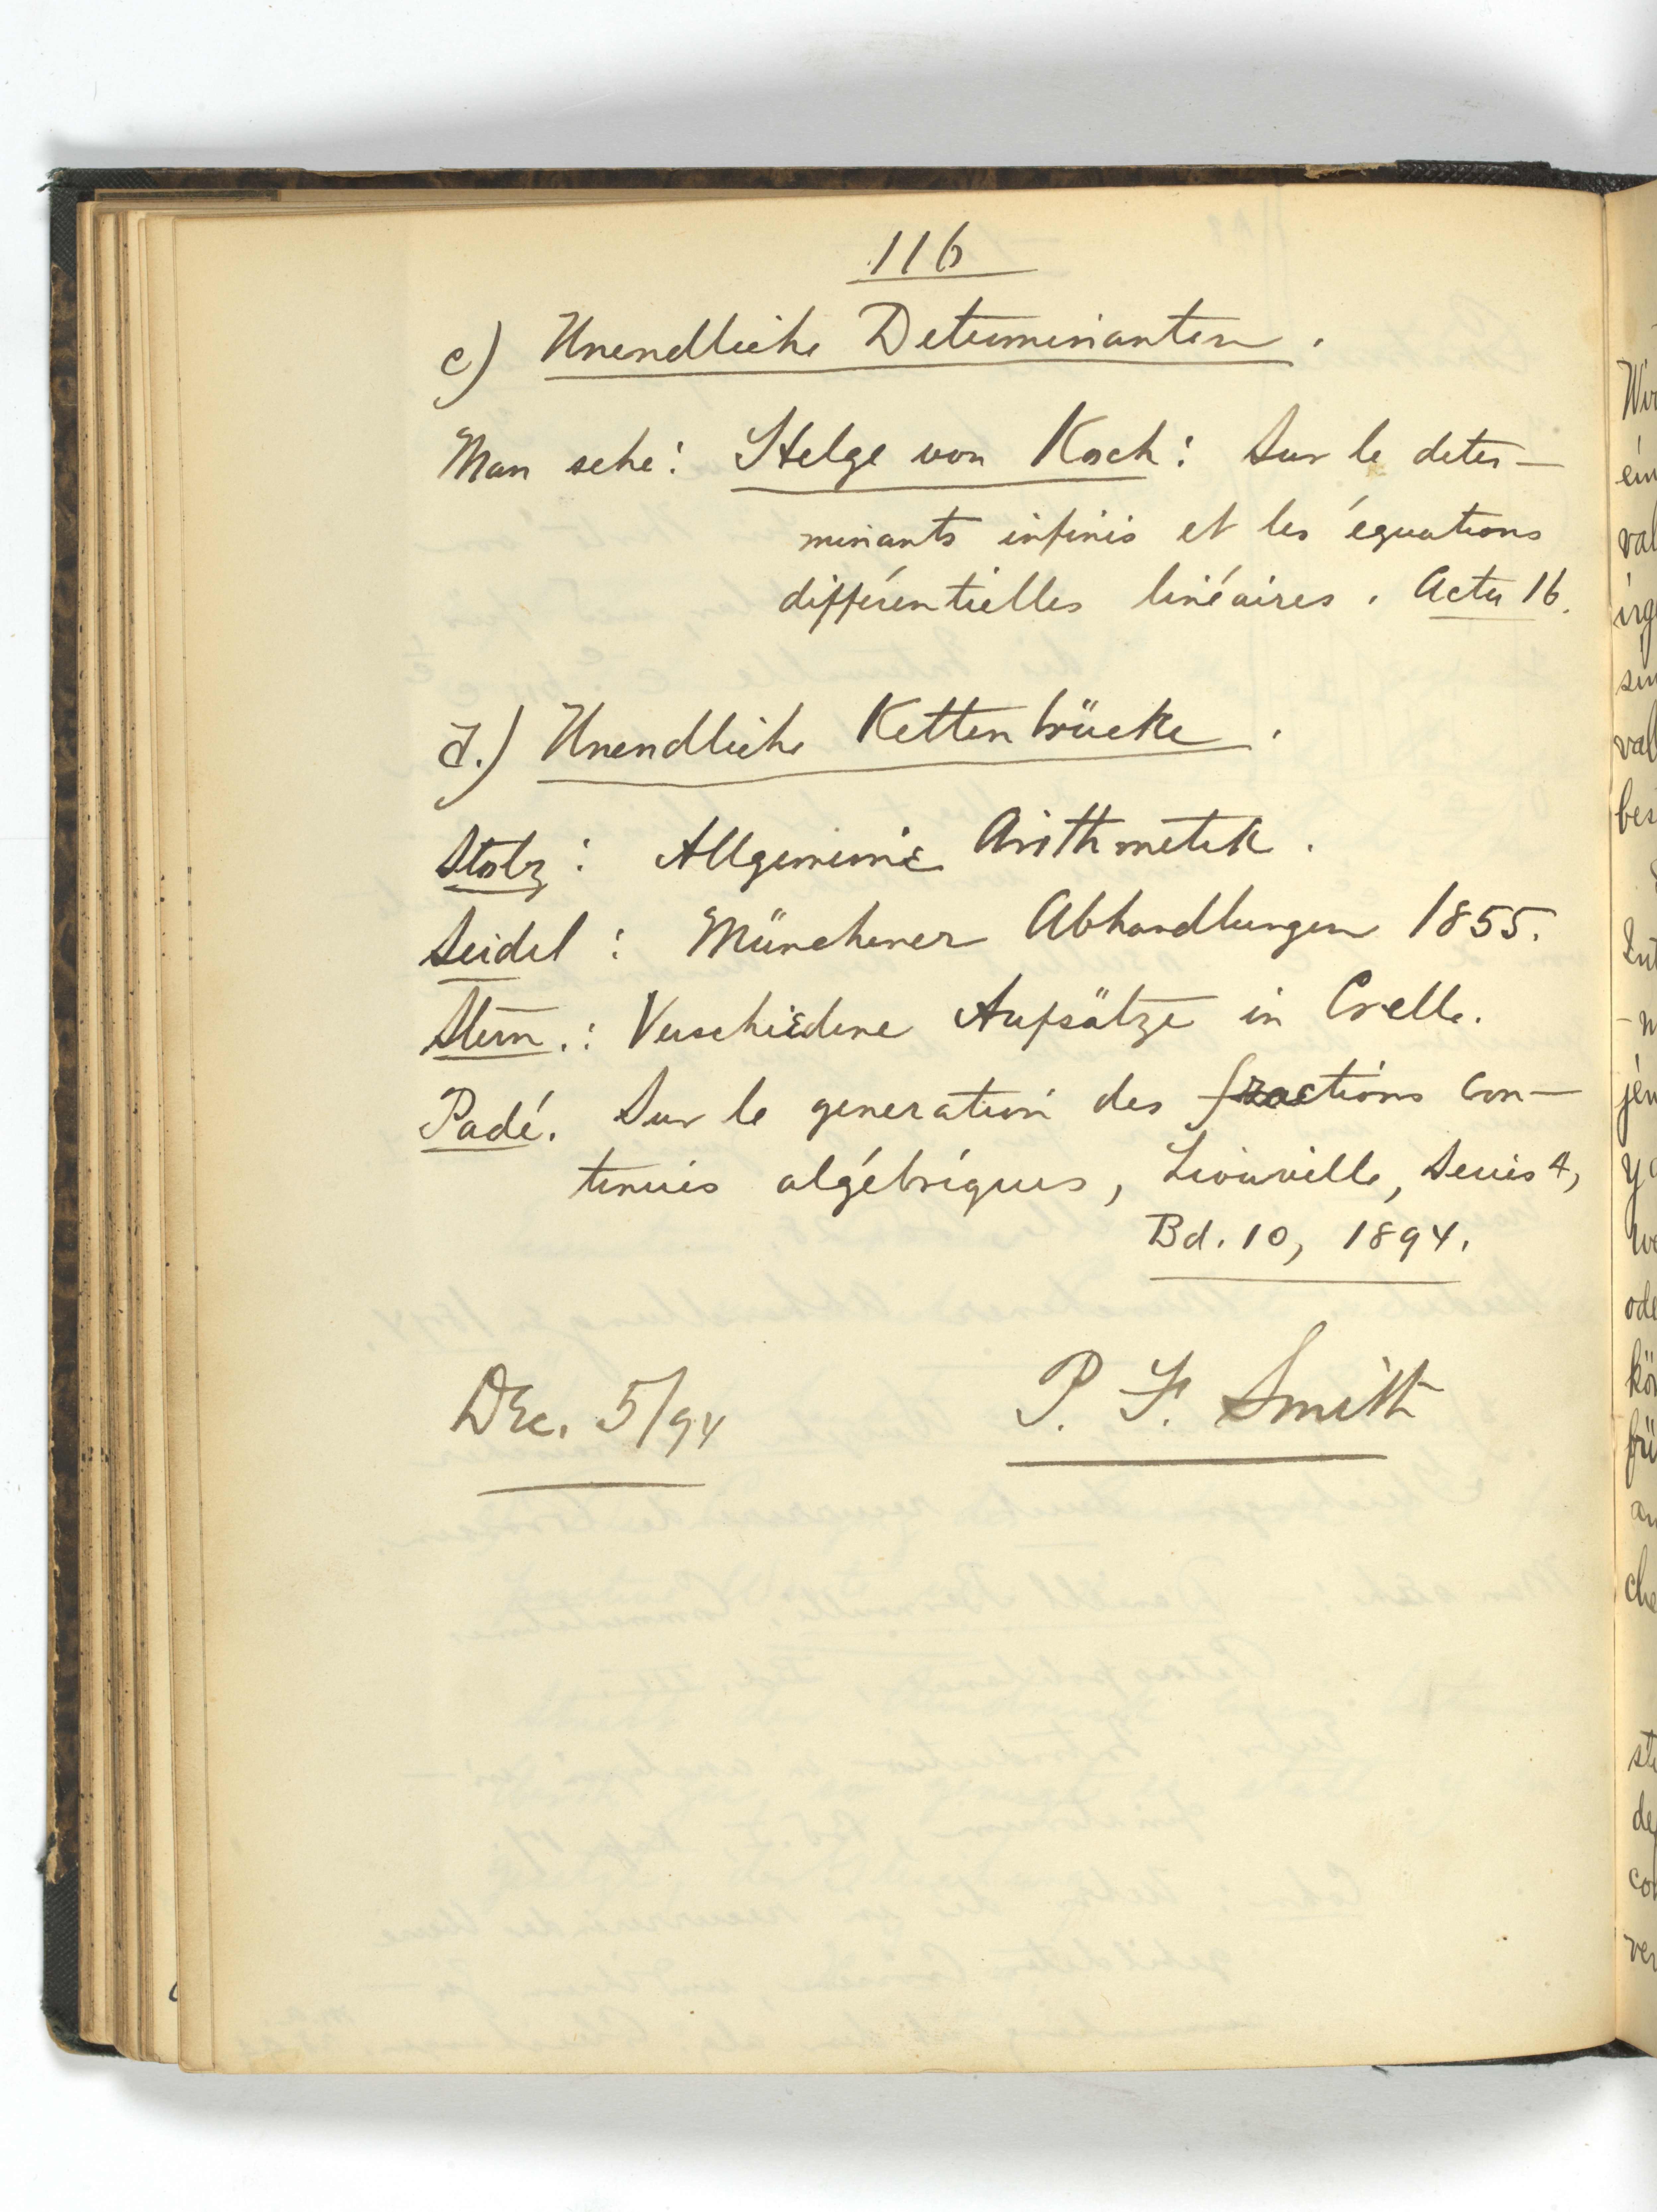 116
c) Unendliche Determinanten.
Man sehe: Helge von Koch: Sur le deter-
minants infinis et les équations
différentielles linéaires. Acta 16.
d.) Unendliche Kettenbrücke.
Stolz: Allgemeine Arithmetik.
Seidel: Münchener Abhandlungen 1855.
Stern.: Verschiedene Aufsätze in Crelle.
Padé. Sur le generation des fractions con-
tinues algébriques, Liouville, Series 4,
Bd. 10, 1894.
Dec. 5/94
P. F. Smith